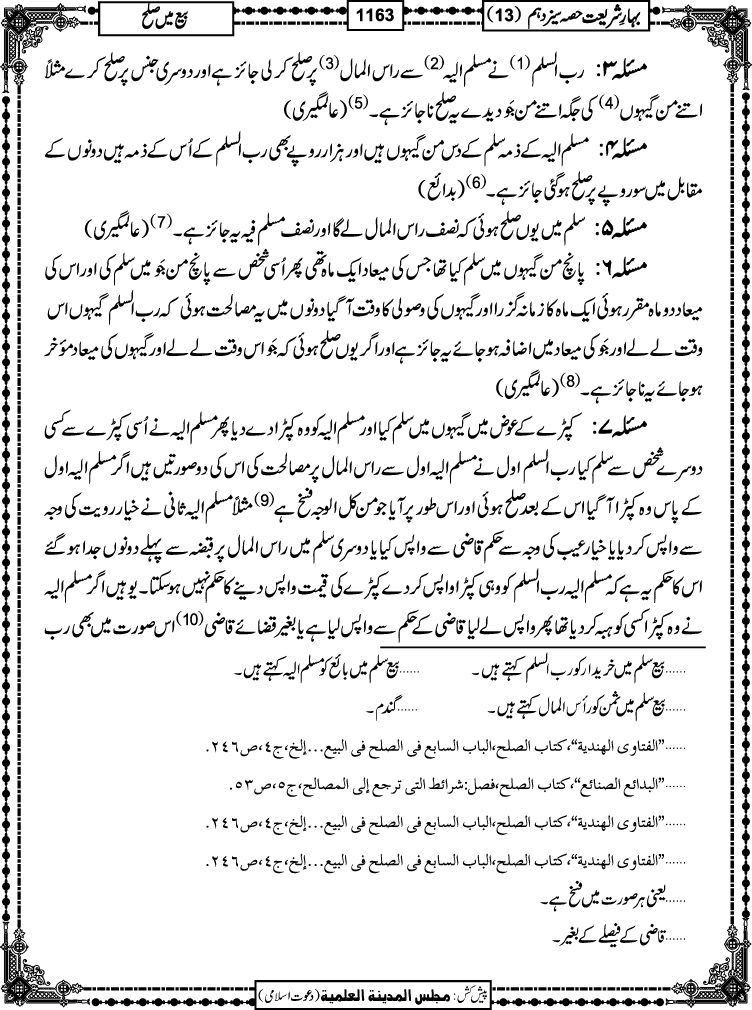 بہارِ شریعت حصہ سیزدہم (13)
1163
بیع میں صلح
مسئلہ ۳: رب السلم (1) نے مسلم الیہ (2) سے راس المال (3) پر صلح کر لی جائز ہے اور دوسری جنس پر صلح کرے مثلاً
اتنے من گیہوں (4) کی جگہ اتنے من جَو دیدے یہ صلح ناجائز ہے۔ (5) (عالمگیری)
مسئلہ ۴: مسلم الیہ کے ذمہ سلم کے دس من گیہوں ہیں اور ہزار روپے بھی رب السلم کے اُس کے ذمہ ہیں دونوں کے
مقابل میں سو روپے پر صلح ہوگئی جائز ہے۔ (6) (بدائع)
مسئلہ ۵: سلم میں یوں صلح ہوئی کہ نصف راس المال لے گا اور نصف مسلم فیہ یہ جائز ہے۔ (7) (عالمگیری)
مسئلہ ۶: پانچ من گیہوں میں سلم کیا تھا جس کی میعاد ایک ماہ تھی پھر اُسی شخص سے پانچ من جَو میں سلم کی اور اس کی
میعاد دو ماہ مقرر ہوئی ایک ماہ کا زمانہ گزرا اور گیہوں کی وصولی کا وقت آگیا دونوں میں یہ مصالحت ہوئی کہ رب السلم گیہوں اس
وقت لے لے اور جَو کی میعاد میں اضافہ ہو جائے یہ جائز ہے اور اگر یوں صلح ہوئی کہ جَو اس وقت لے لے اور گیہوں کی میعاد مؤخر
ہو جائے یہ ناجائز ہے۔ (8) (عالمگیری)
مسئلہ ۷: کپڑے کے عوض میں گیہوں میں سلم کیا اور مسلم الیہ کو وہ کپڑا دے دیا پھر مسلم الیہ نے اُسی کپڑے سے کسی
دوسرے شخص سے سلم کیا رب السلم اول نے مسلم الیہ اول سے راس المال پر مصالحت کی اس کی دو صورتیں ہیں اگر مسلم الیہ اول
کے پاس وہ کپڑا آگیا اس کے بعد صلح ہوئی اور اس طور پر آیا جو من کل الوجہ فسخ ہے (9) مثلاً مسلم الیہ ثانی نے خیار رویت کی وجہ
سے واپس کر دیا یا خیار عیب کی وجہ سے حکم قاضی سے واپس کیا یا دوسری سلم میں راس المال پر قبضہ سے پہلے دونوں جدا ہو گئے
اس کا حکم یہ ہے کہ مسلم الیہ رب السلم کو وہی کپڑا واپس کر دے کپڑے کی قیمت واپس دینے کا حکم نہیں ہو سکتا۔ یوہیں اگر مسلم الیہ
نے وہ کپڑا کسی کو ہبہ کر دیا تھا پھر واپس لے لیا قاضی کے حکم سے واپس لیا ہے یا بغیر قضائے قاضی (10) اس صورت میں بھی رب
......بیع سلم میں خریدار کو رب السلم کہتے ہیں۔ ......بیع سلم میں بائع کو مسلم الیہ کہتے ہیں۔
......بیع سلم میں ثمن کو رأس المال کہتے ہیں۔ ......گندم۔
......"الفتاوی الهندیة"، کتاب الصلح، الباب السابع فی الصلح فی البیع...إلخ، ج٤، ص٢٤٦.
......"البدائع الصنائع"، کتاب الصلح، فصل: شرائط التی ترجع إلی المصالح، ج٥، ص٥٣.
......"الفتاوی الهندیة"، کتاب الصلح، الباب السابع فی الصلح فی البیع...إلخ، ج٤، ص٢٤٦.
......"الفتاوی الهندیة"، کتاب الصلح، الباب السابع فی الصلح فی البیع...إلخ، ج٤، ص٢٤٦.
......یعنی ہر صورت میں فسخ ہے۔
......قاضی کے فیصلے کے بغیر۔
پیش کش: مجلس المدینة العلمیة (دعوت اسلامی)